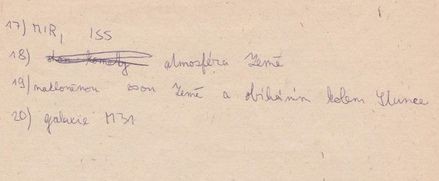 17) MIR, ISS
18) atmosféra Země
19) nakloněnou osou Země a obíháním kolem Slunce
20) galaxie M31